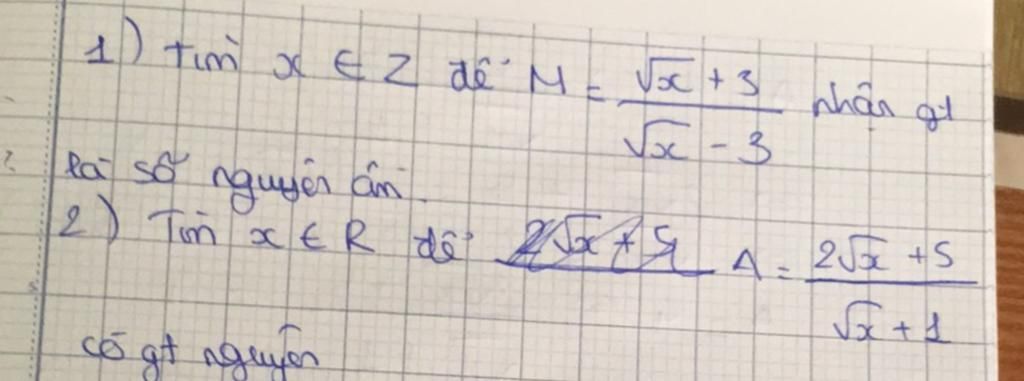 1) Tìm x ∈ Z để M = (√x + 3)/(√x - 3) nhận gt
là số nguyên âm.
2) Tìm x ∈ R để A = (2√x + 5)/(√x + 1)
có gt nguyên